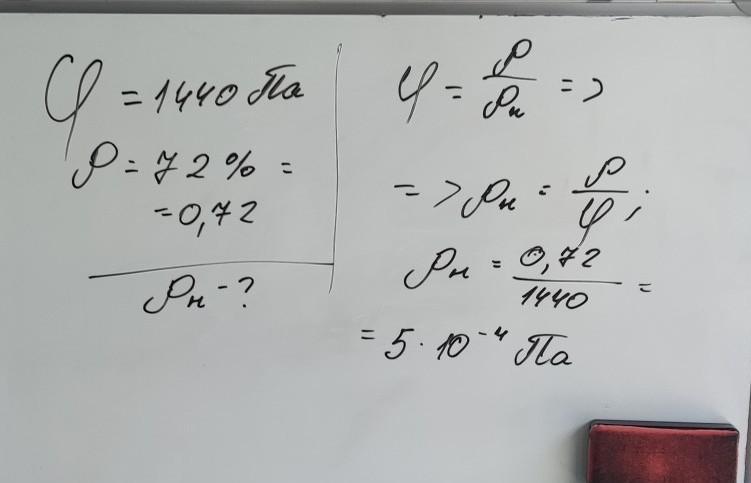 φ = 1440 Па
ρ = 72 % =
= 0,72
ρн - ?
φ = ρ/ρн =>
=> ρн = ρ/φ;
ρн = 0,72/1440 =
= 5 · 10⁻⁴ Па